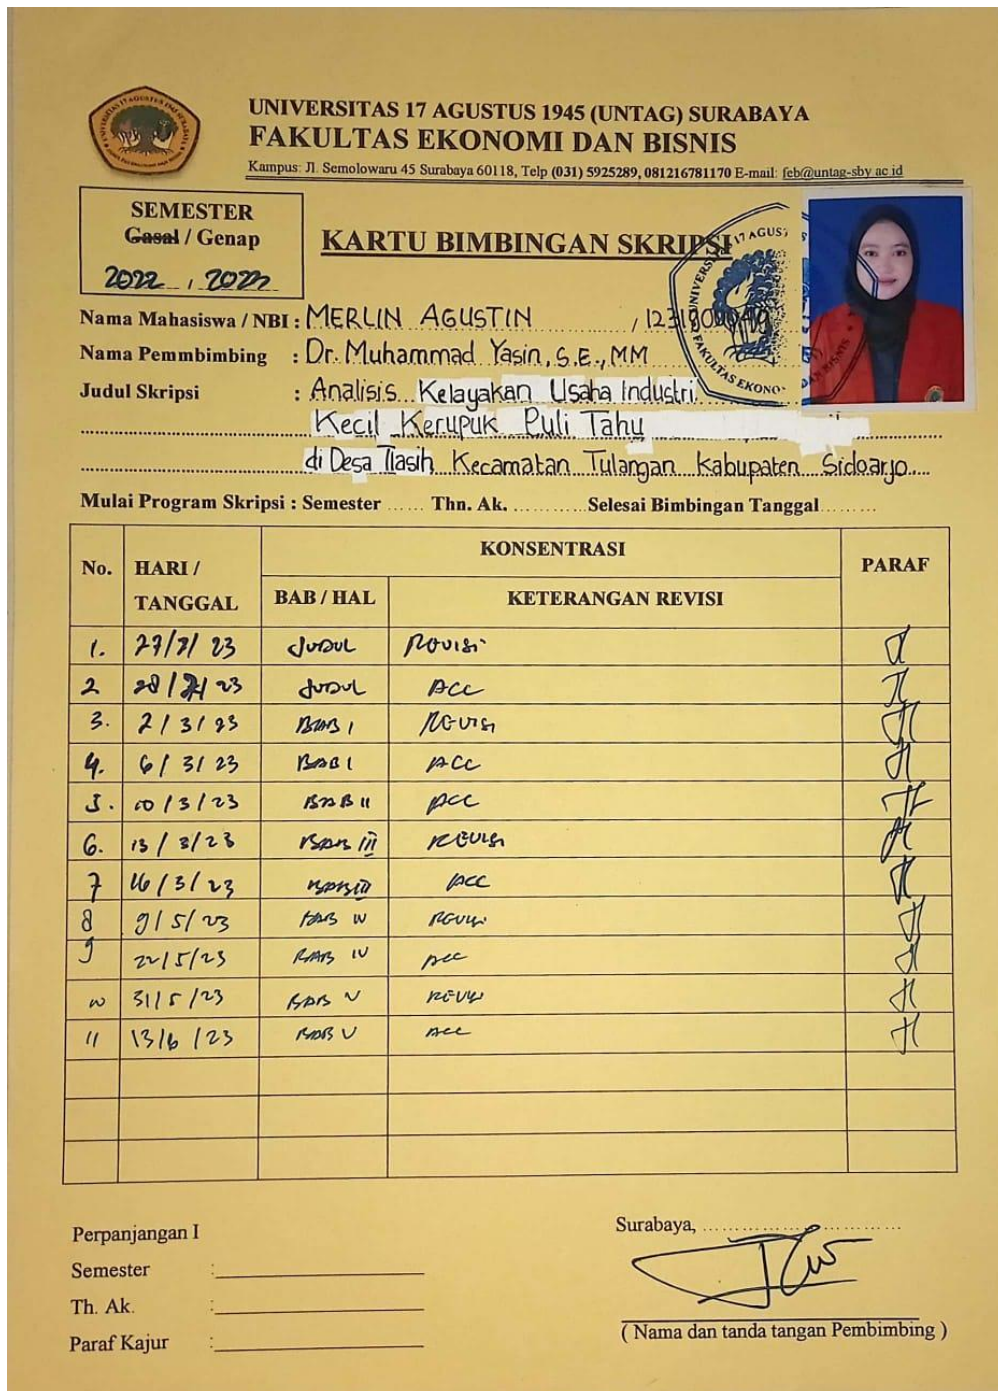 UNIVERSITAS 17 AGUSTUS 1945 (UNTAG) SURABAYA
FAKULTAS EKONOMI DAN BISNIS
Kampus: Jl. Semolowaru 45 Surabaya 60118, Telp (031) 5925289, 081216781170 E-mail: feb@untag-sby.ac.id
SEMESTER
Gasal / Genap
2022
KARTU BIMBINGAN SKRIPSI
Nama Mahasiswa / NBI : MERLIN AGUSTIN /
Nama Pemmbimbing : Dr. Muhammad Yasin, S.E., MM
Judul Skripsi : Analisis Kelayakan Usaha Industri
Kecil Kerupuk Puli Tahu
di Desa Tlasih Kecamatan Tulangan Kabupaten Sidoarjo
Mulai Program Skripsi : Semester ...... Thn. Ak. ............ Selesai Bimbingan Tanggal .........
No. HARI / TANGGAL KONSENTRASI PARAF
BAB / HAL KETERANGAN REVISI
1. JUDUL Revisi
2 JUDUL ACC
3. 2/3/23 BAB I Revisi
4. 6/3/23 BAB I ACC
5. 10/3/23 BAB II ACC
6. 13/3/23 BAB III REVISI
7 16/3/23 BAB III ACC
8 9/5/23 BAB IV Revisi
9 22/5/23 BAB IV ACC
10 31/5/23 BAB V REVISI
11 13/6/23 BAB V ACC
Perpanjangan I
Semester :
Th. Ak. :
Paraf Kajur :
Surabaya, ..............................
( Nama dan tanda tangan Pembimbing )